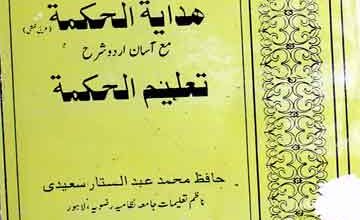 هدایة الحکمة
مع آسان اردو شرح
تعلیم الحکمة
حافظ محمد عبدالستار سعیدی
ناظم تعلیمات جامعہ نظامیہ رضویہ، لاہور